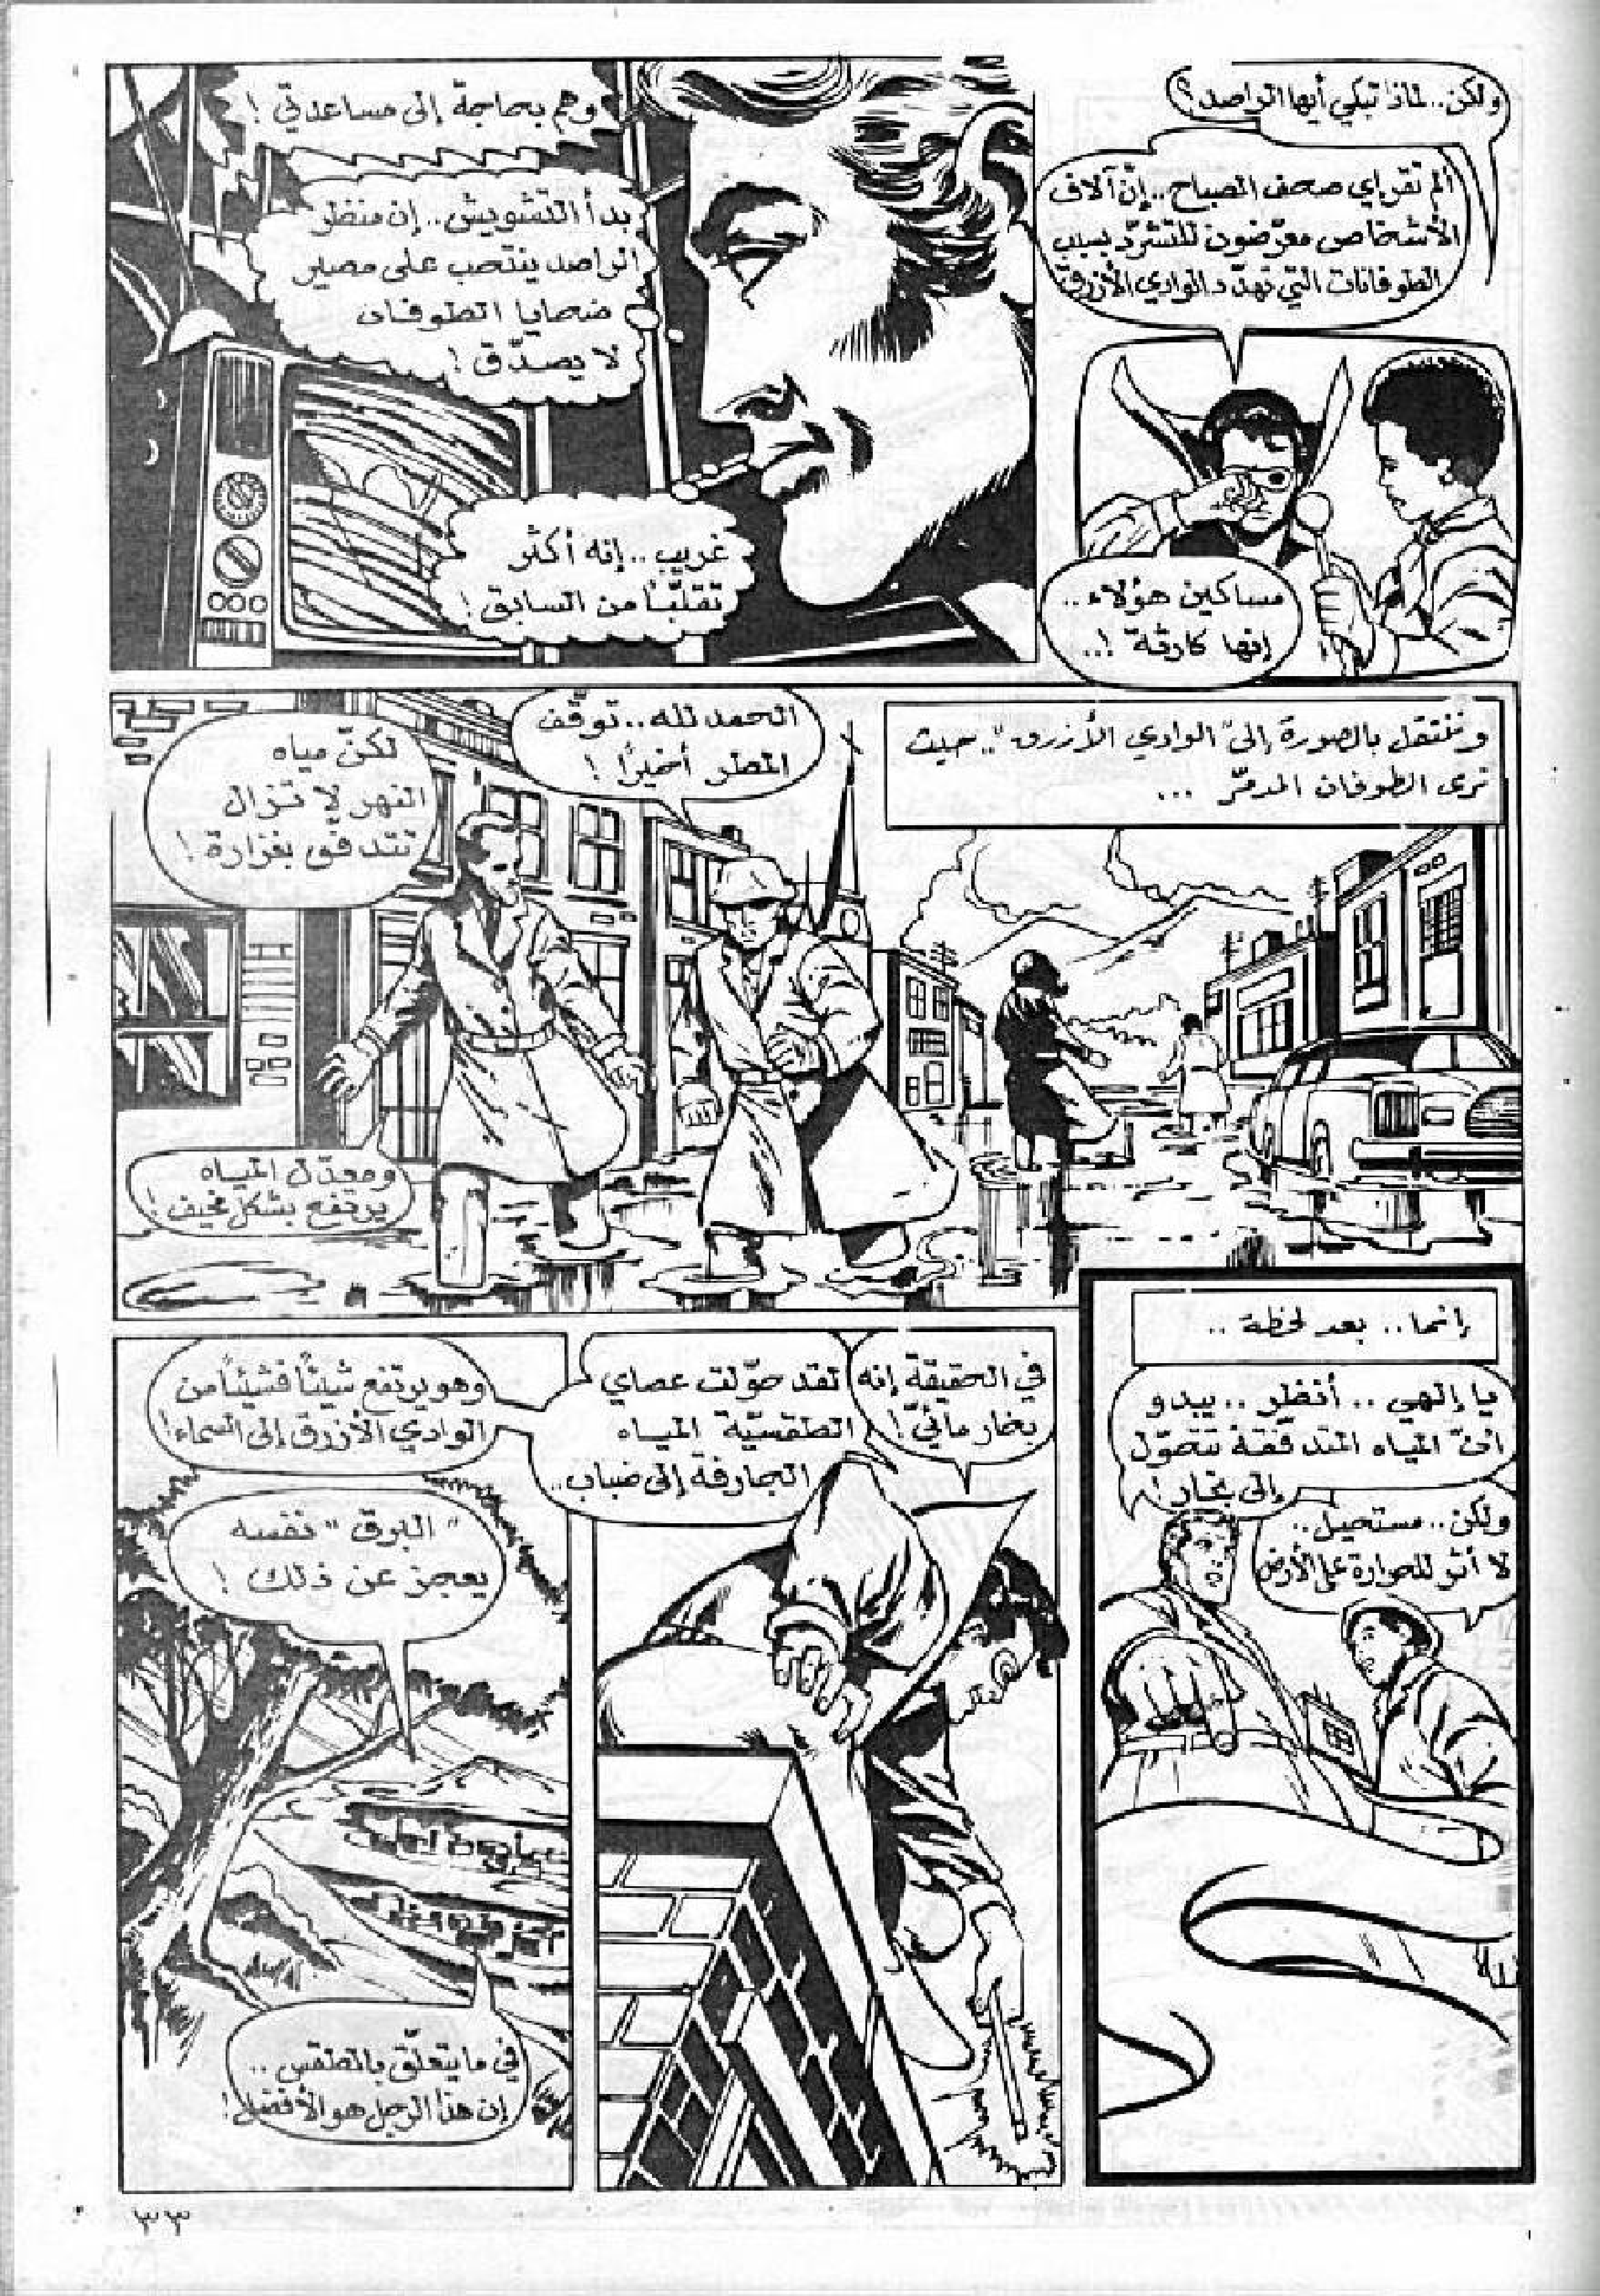 ولكن.. لماذا تبكي أيها الراصد؟
ألم تقرإي صحف الصباح.. إنّ آلاف
الأشخاص معرّضون للتشرّد بسبب
الطوفانات التي تهدّد الوادي الأزرق
مساكين هؤلاء..
إنها كارثة !..
وهم بحاجة إلى مساعدتي !
بدأ التشويش.. إن منظر
الراصد ينتحب على مصير
ضحايا الطوفان
لا يصدّق !
غريب.. إنه أكثر
تقلّبًا من السابق !
وننتقل بالصورة إلى الوادي الأزرق".. حيث
نرى الطوفان المدمّر ...
الحمد لله.. توقّف
المطر أخيرًا !
لكنّ مياه
النهر لا تزال
تتدفق بغزارة !
ومعدّل المياه
يرتفع بشكل مخيف !
إنما.. بعد لحظة ..
يا إلهي .. أنظر .. يبدو
انّ المياه المتدفقة تتحوّل
إلى بخار !
ولكن.. مستحيل..
لا أثر للحرارة على الأرض
في الحقيقة إنه
بخار مائيّ !
لقد حوّلت عصاي
الطقسيّة المياه
الجارفة إلى ضباب..
وهو يرتفع شيئًا فشيئًا من
الوادي الأزرق إلى السماء !
"البرق" نفسه
يعجز عن ذلك !
في ما يتعلّق بالطقس ..
إن هذا الرجل هو الأفضل !
٣٣